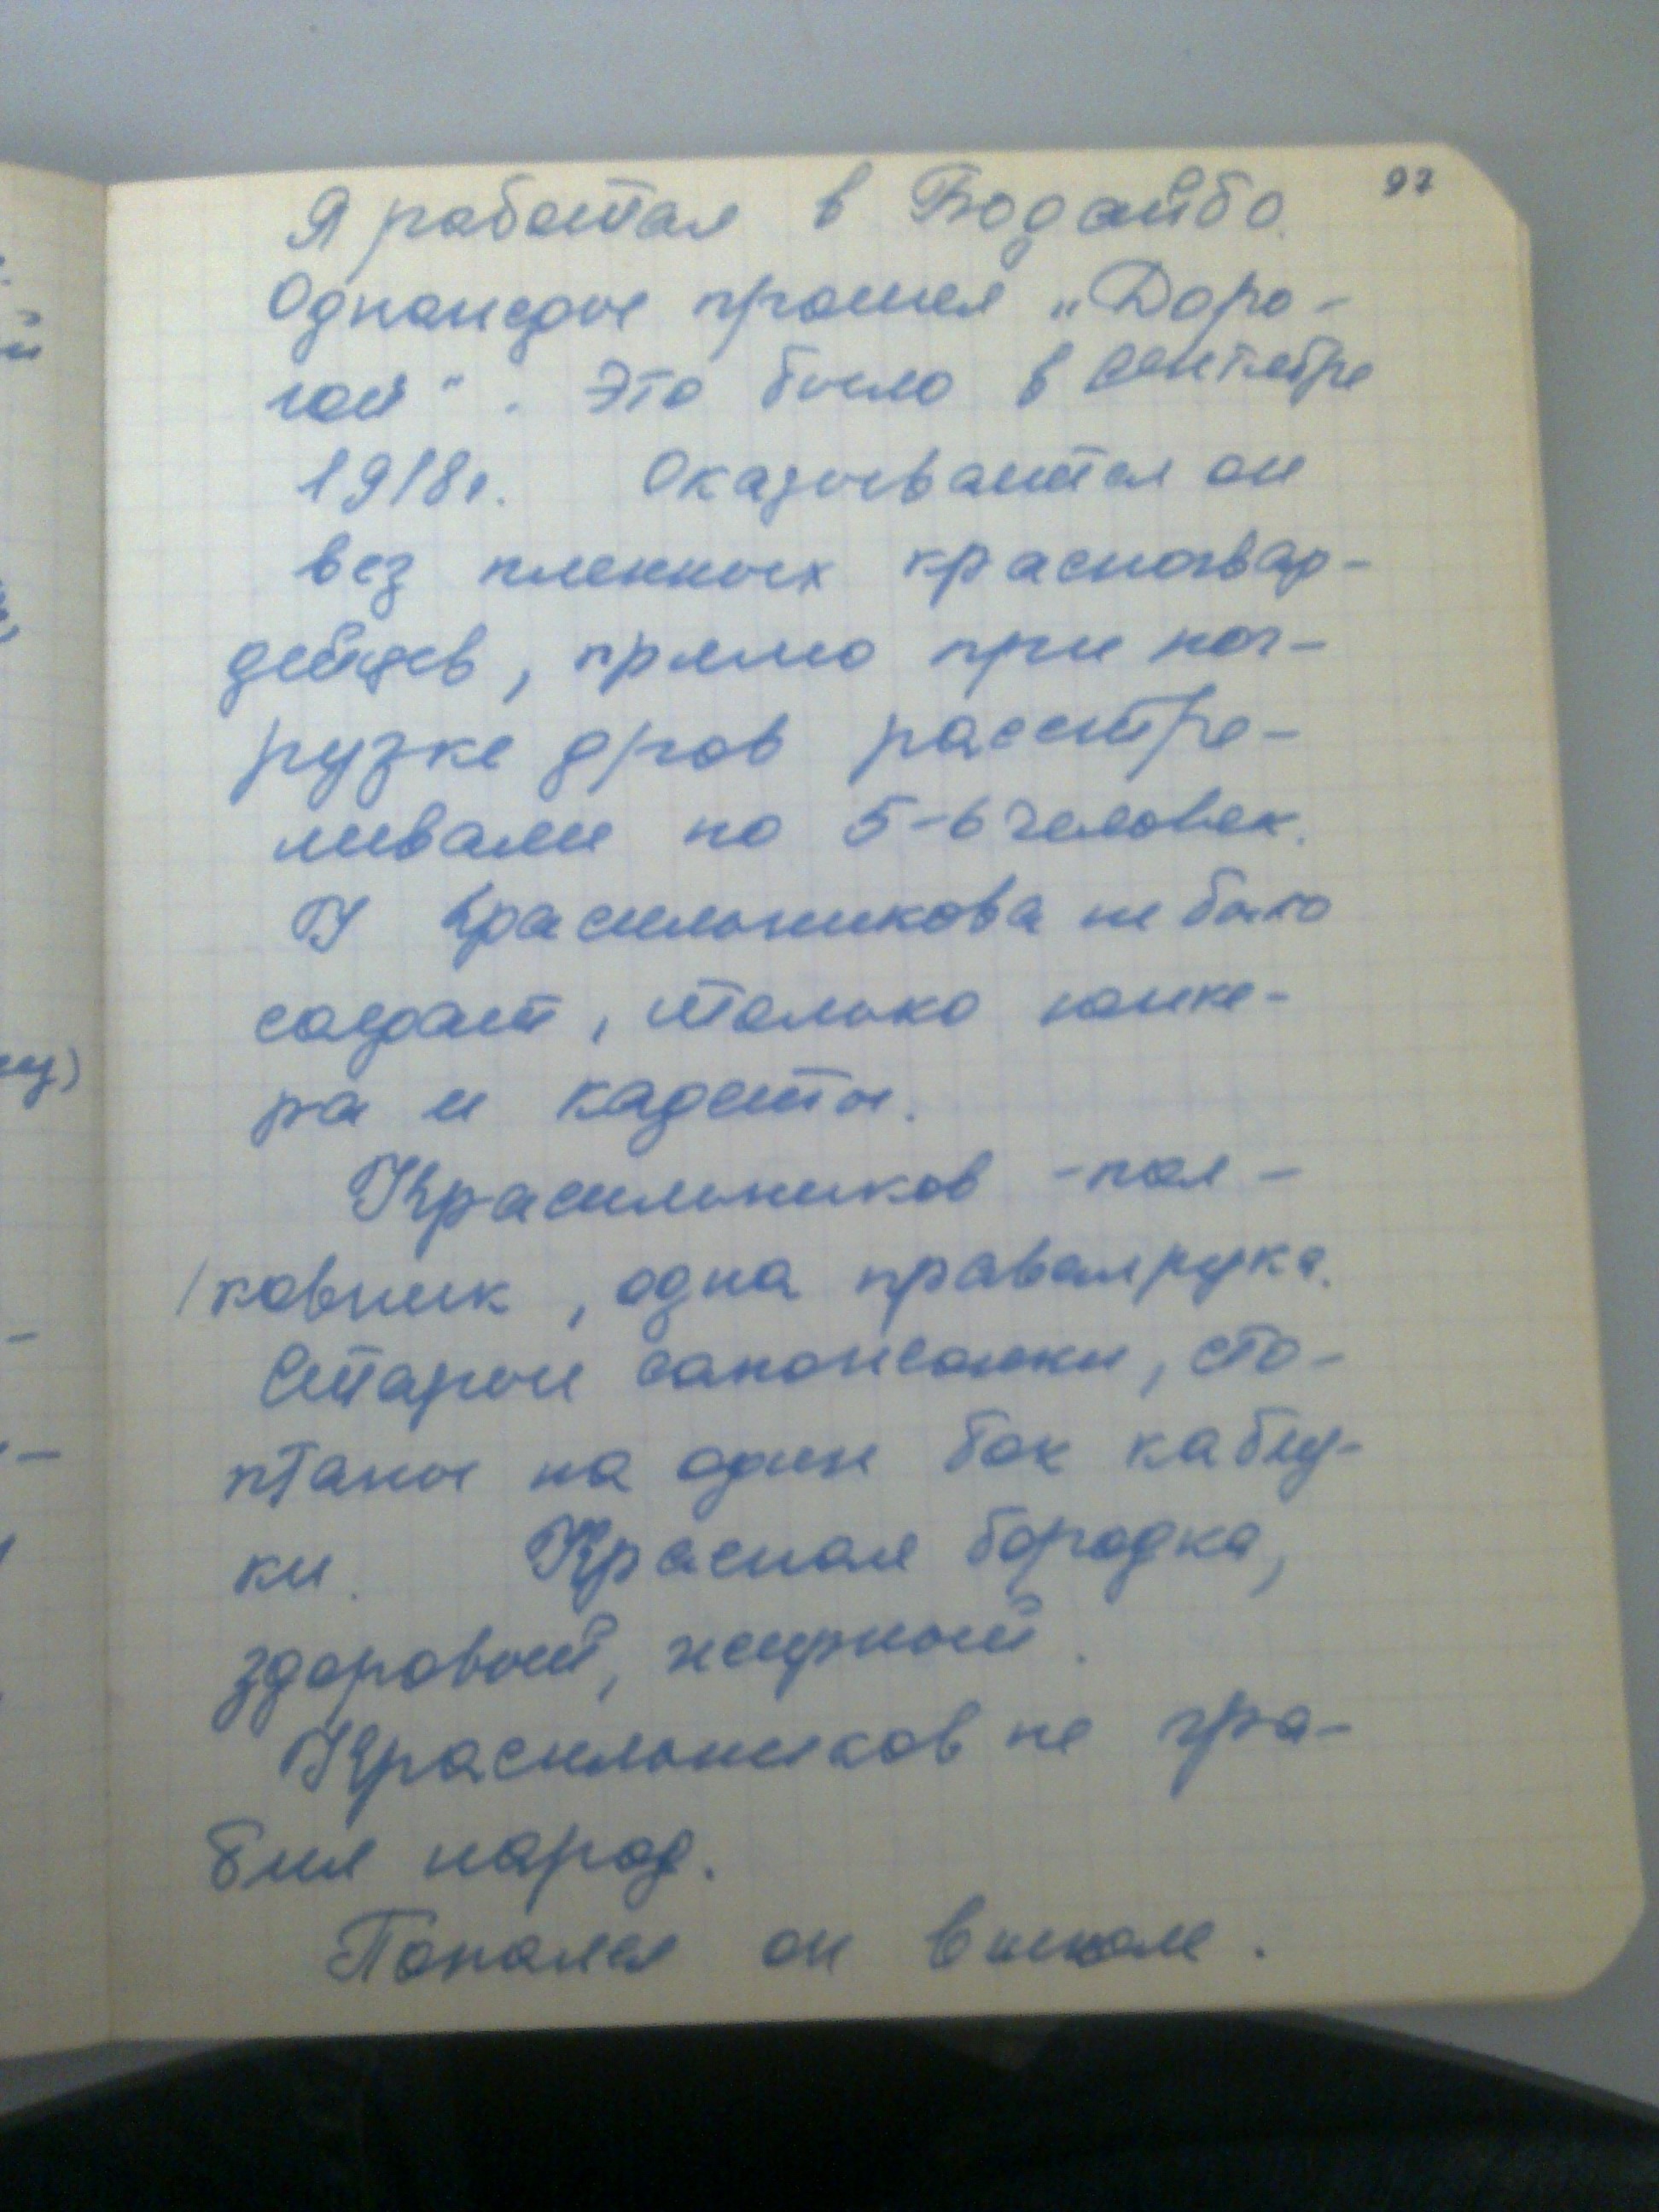 97
Я работал в Бодайбо.
Однажды прошел „Доро-
гой". Это было в сентябре
1918г. Оказывается он
вез пленных красногвар-
дейцев, прямо при пог-
рузке дров расстре-
ливали по 5-6 человек.
У Красильникова не было
солдат, только юнке-
ра и кадеты.
Красильников - пол-
ковник, одна правая рука.
Старые сапожонки, сто-
птаны на один бок каблу-
ки. Красная бородка,
здоровый, жирный.
Красильников не гра-
бил народ.
Попался он